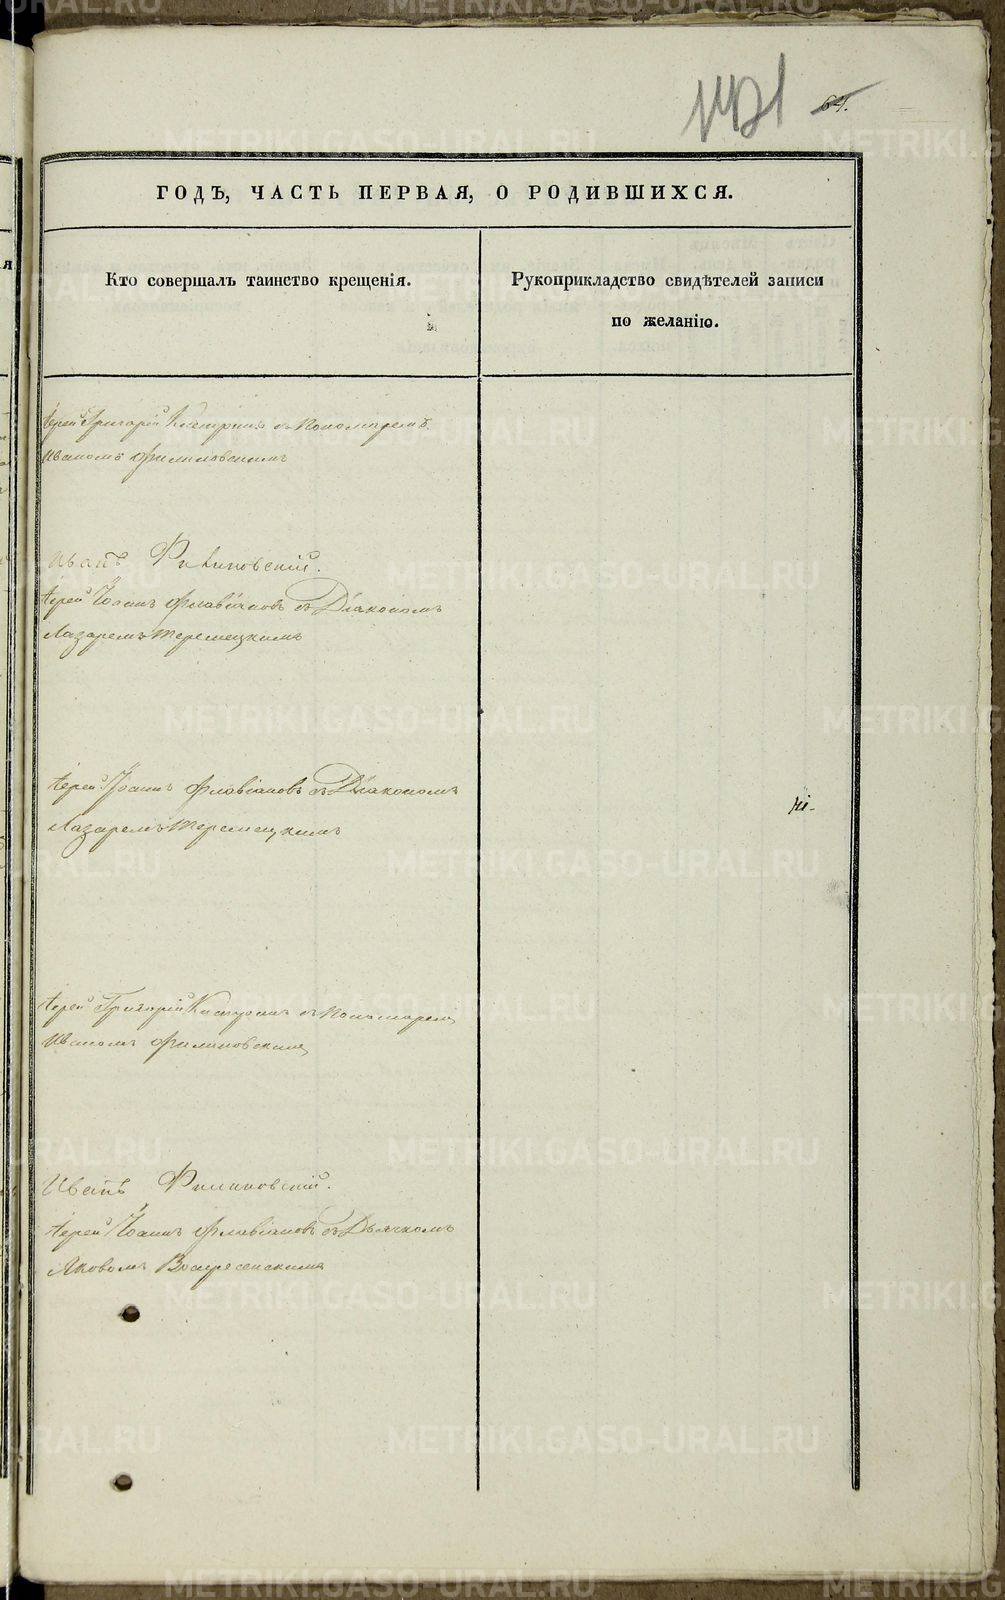 64.
ГОДЪ, ЧАСТЬ ПЕРВАЯ, О РОДИВШИХСЯ.
Кто совершалъ таинство крещенія.
Рукоприкладство свидѣтелей записи
по желанію.
Іерей Григорій съ Пономаремъ
Иваномъ Филиновскимъ
Иванъ Филиновскій.
Іерей Іоаннъ Флавіановъ съ Діакономъ
Лазаремъ Теремецкимъ
Іерей Іоаннъ Флавіановъ съ Діакономъ
Лазаремъ Теремецкимъ
Іерей Григорій съ Пономаремъ
Иваномъ Филиновскимъ
Иванъ Филиновскій.
Іерей Іоаннъ Флавіановъ съ Дьячкомъ
Яковомъ Воскресенскимъ
METRIKI.GASO-URAL.RU